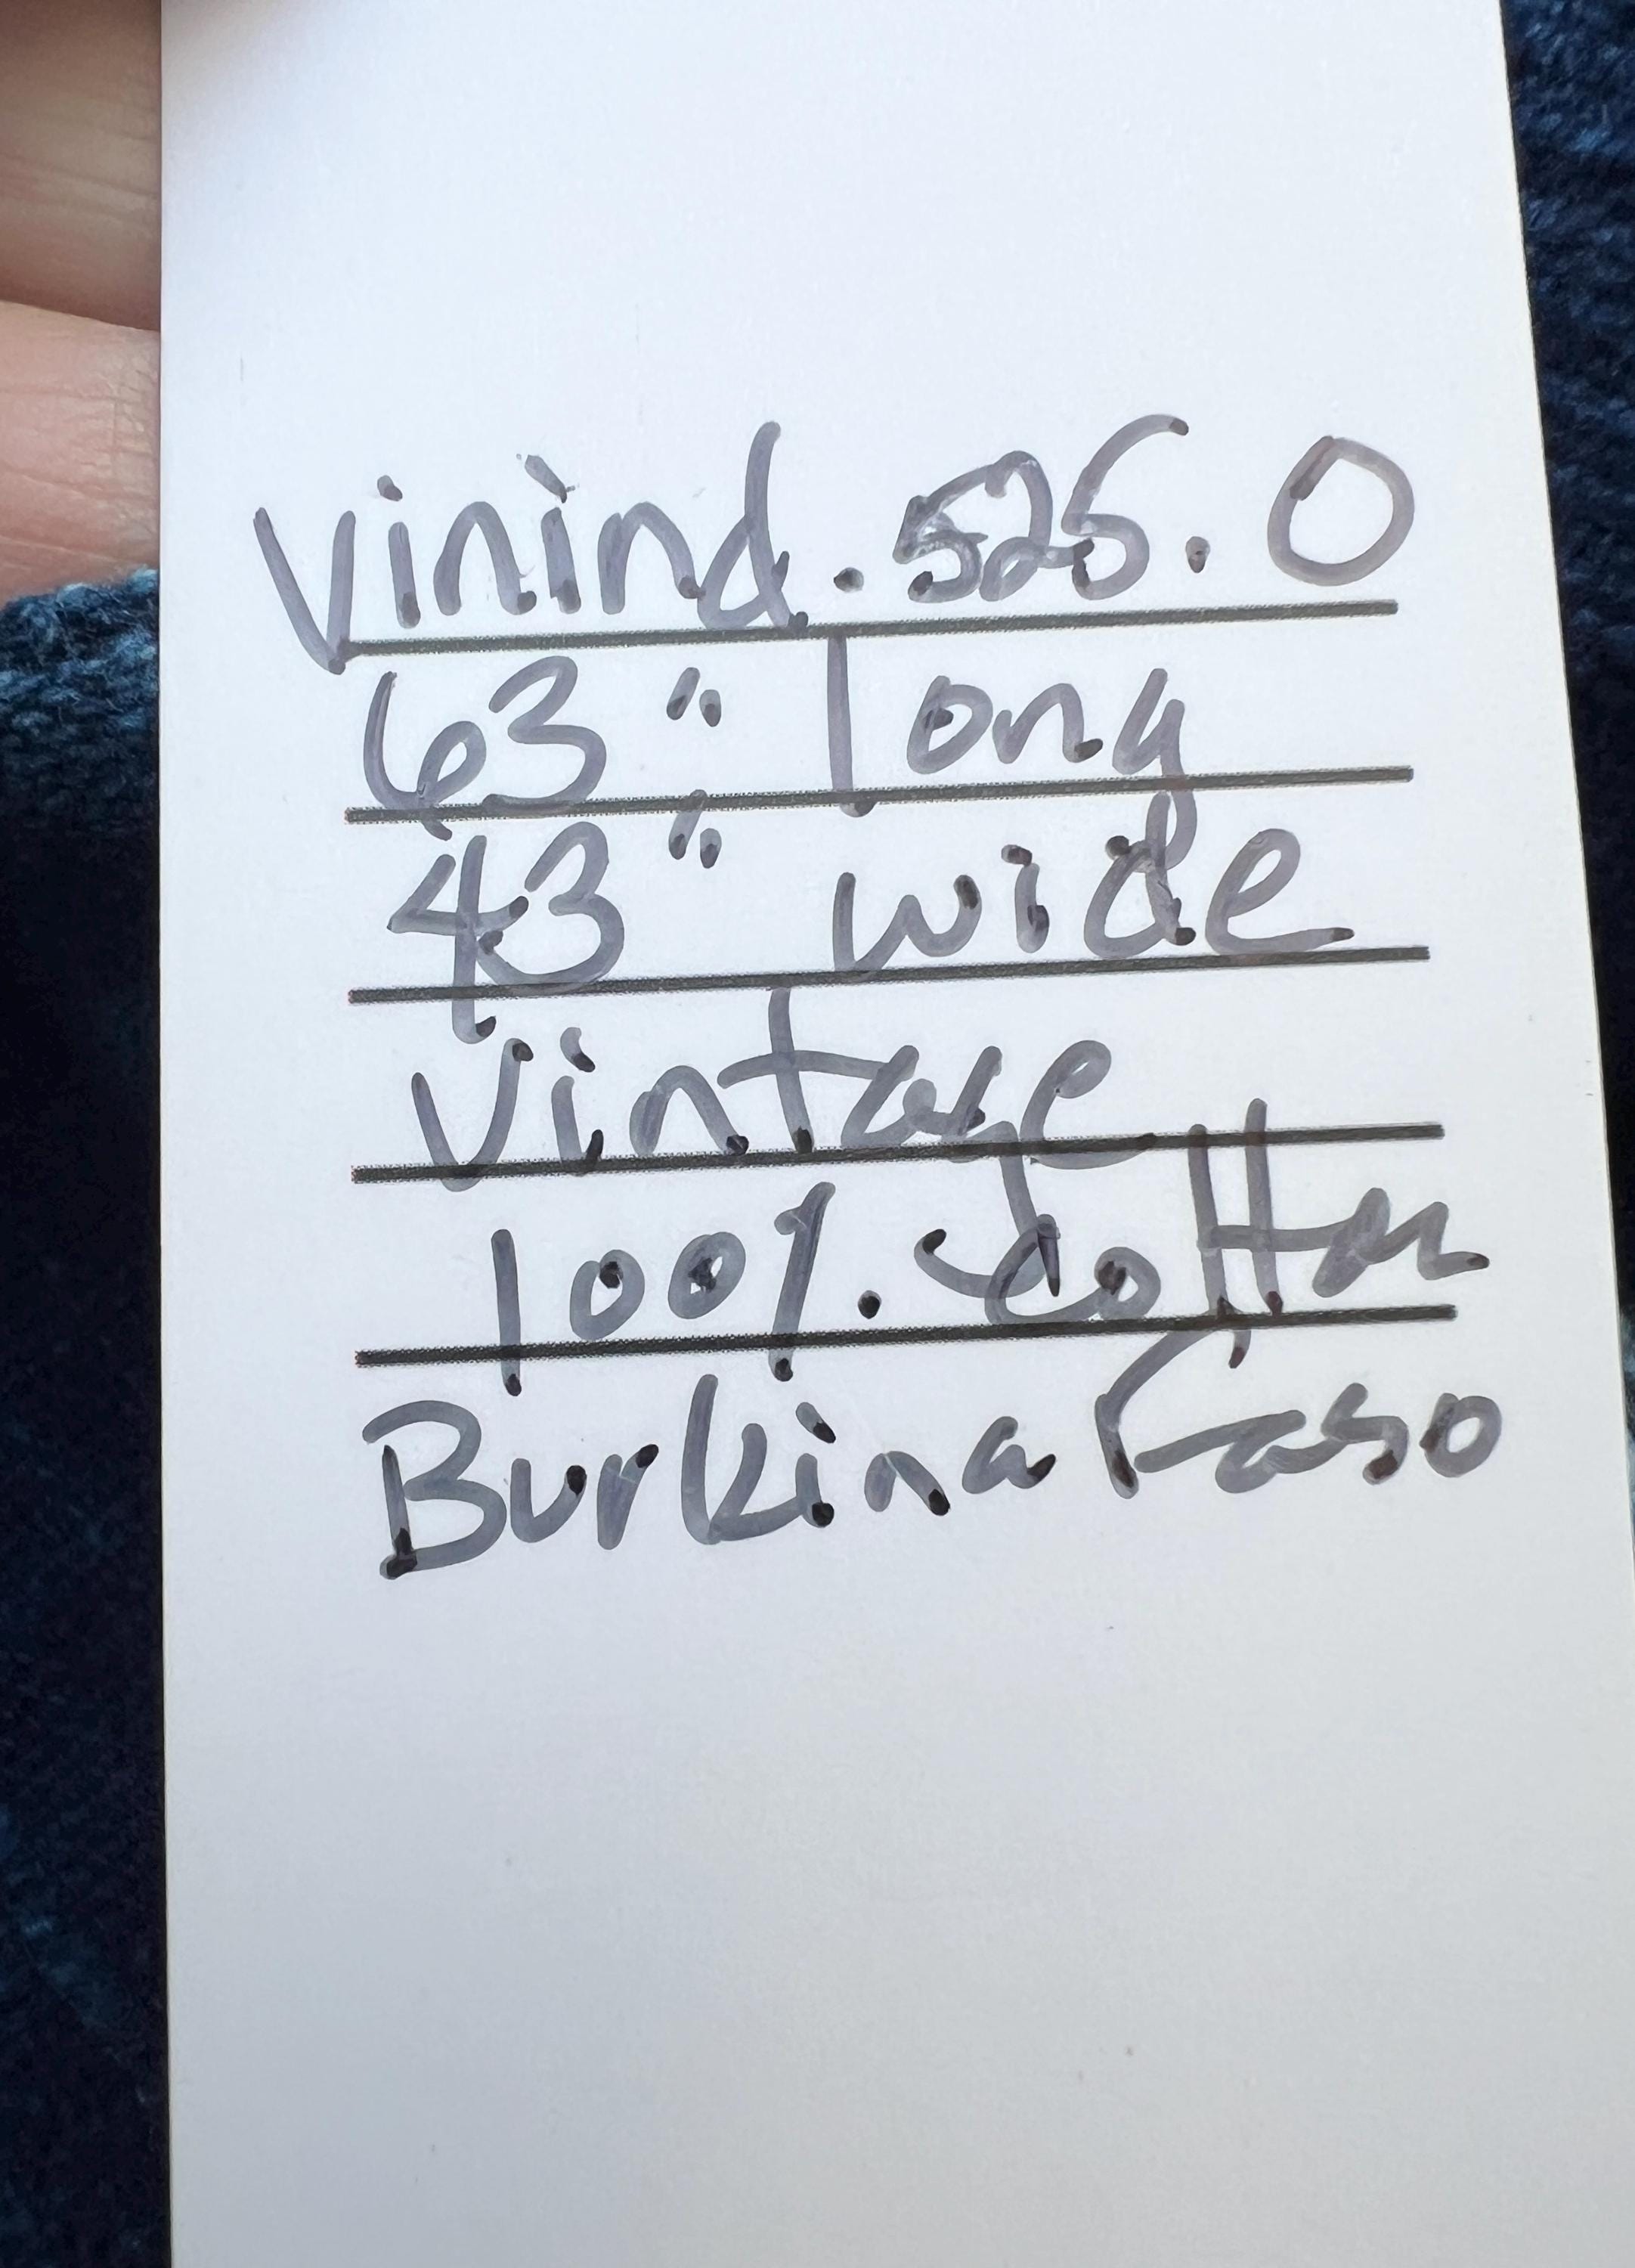 Vinind.525.0
63" long
43" wide
Vintage
100% cotton
Burkina Faso